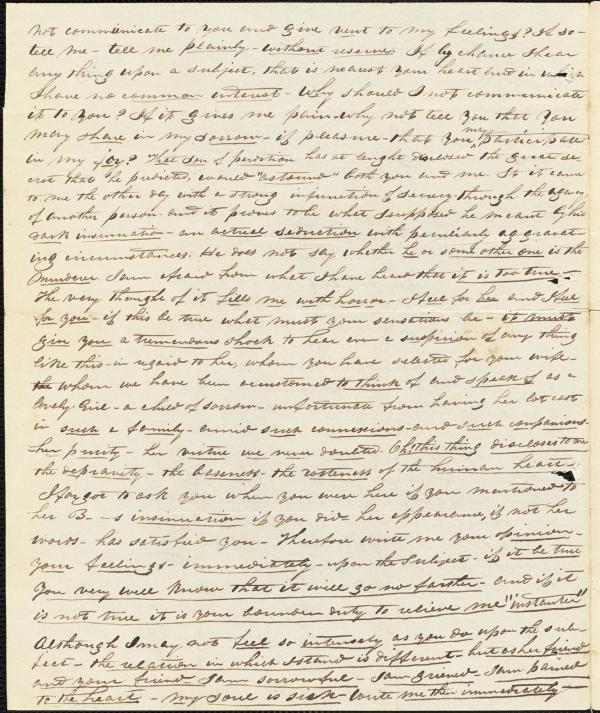 not communicate to you and give vent to my feelings? If so -
tell me - tell me plainly - without reserve. If by chance I hear
any thing upon a subject, that is nearest your heart and in which
I have no common interest - why should I not communicate
it to you? If it gives me pain - why not tell you that you
may share in my sorrow - if pleasure - that you may participate
in my joy? That son of perdition has at lenght disclosed the great se-
cret that he predicted, would "astound" both you and me. It it came
to me the other day with a strong injunction of secrecy through the agency
of another person and it proves to be what I supposed he meant by his
dark insinuation - an actual seduction with peculiarly aggravat-
ing circumstances. He does not say whether he or some other one is the
murderer I am afraid from what I have heard that it is too true -
The very thought of it fills me with horror - I feel for her and I feel
for you - if this be true what must your sensations be - it must
give you a tremendous shock to hear even a suspicion of any thing
like this - in regard to her, whom you have selected for your wife -
whom we have been accustomed to think of and speak of as a
lovely Girl - a child of sorrow - unfortunate from having her lot cast
in such a family - amid such connexions - and such companions.
her purity - her virtue we never doubted. Oh! this thing discloses to me
the depravity - the baseness - the rottenness of the human heart.
I forgot to ask you when you were here if you mentioned to
her B- -s insinuation if you did - her appearance, if not her
words - has satisfied you - Therefore write me your opinion -
your feelings - immediately - upon the Subject - if it be true
you very well know that it will go no farther - and if it
is not true it is your bounden duty to relieve me "instanter"
Although I may not feel so intensely as you do upon the sub-
ject - the relation in which I stand is different - but as her friend
and your friend I am sorrowful - I am grieved - I am pained
to the heart - my soul is sick - write me then immediately -